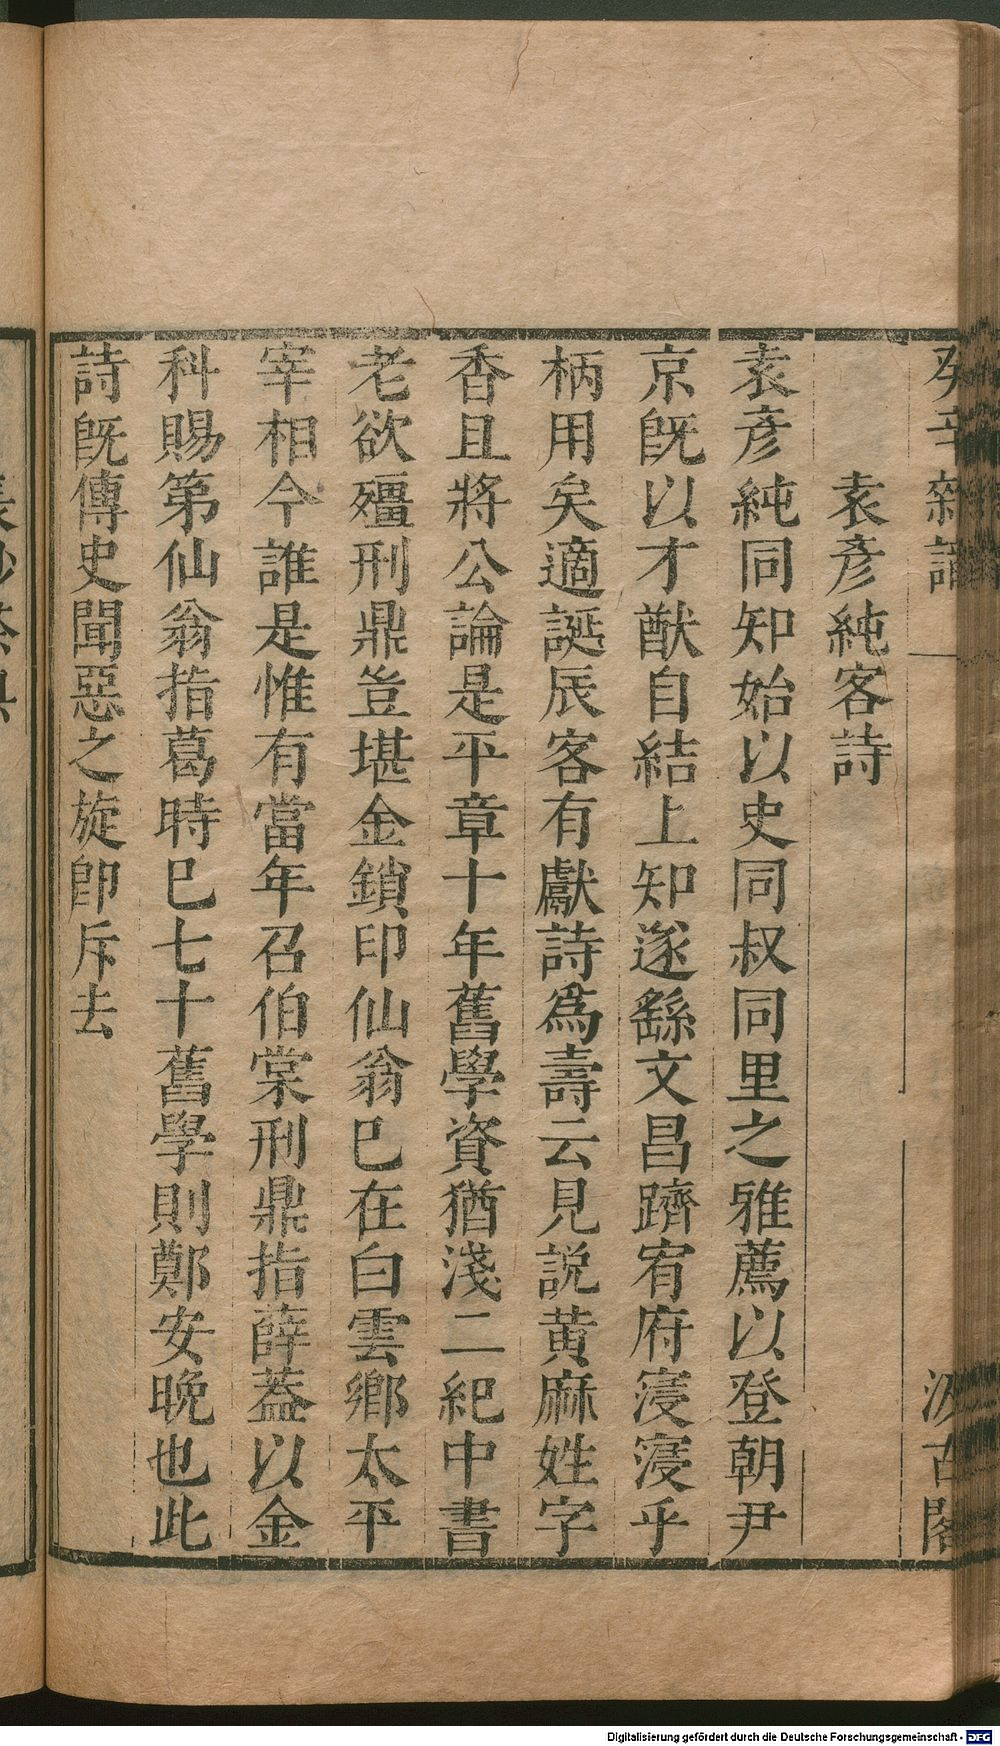 袁彦純客詩
袁彦純同知始以史同叔同里之雅薦以登朝尹
京旣以才猷自結上知遂繇文昌躋宥府寖寖乎
柄用矣適誕辰客有獻詩爲壽云見説黄麻姓字
香且將公論是平章十年舊學資猶淺二紀中書
老欲殭刑鼎豈堪金鎖印仙翁巳在白雲鄉太平
宰相今誰是惟有當年召伯棠刑鼎指薛葢以金
科賜第仙翁指葛時巳七十舊學則鄭安晚也此
詩旣傳史聞惡之旋卽斥去
Digitalisierung gefördert durch die Deutsche Forschungsgemeinschaft - DFG